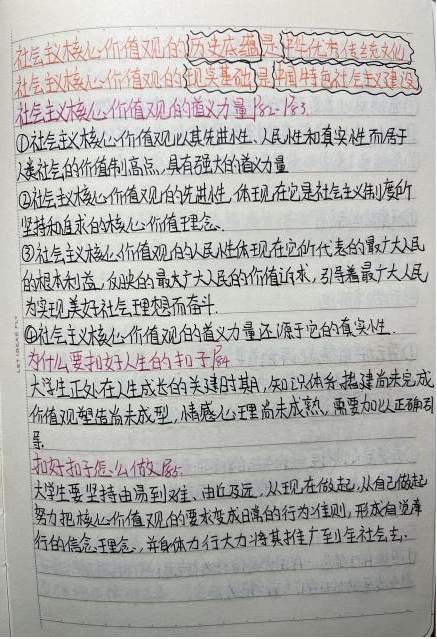 社会主义核心价值观的历史底蕴是中华优秀传统文化
社会主义核心价值观的现实基础是中国特色社会主义建设
社会主义核心价值观的道义力量P82-P83
①社会主义核心价值观以其先进性、人民性和真实性而居于
人类社会的价值制高点,具有强大的道义力量
②社会主义核心价值观的先进性,体现在它是社会主义制度所
坚持和追求的核心价值理念、
③社会主义核心价值观的人民性体现在它所代表的最广大人民
的根本利益,反映的最大广大人民的价值诉求,引导着最广大人民
为实现美好社会理想而奋斗.
④社会主义核心价值观的道义力量还源于它的真实性.
为什么要扣好人生的扣子P84
大学生正处在人生成长的关键时期,知识体系搭建尚未完成
价值观塑造尚未成型,情感心理尚未成熟,需要加以正确引
导.
扣好扣子怎么做P85
大学生要坚持由易到难、由近及远,从现在做起,从自己做起
努力把核心价值观的要求变成日常的行为准则,形成自觉奉
行的信念理念,并身体力行大力将其推广到全社会去.